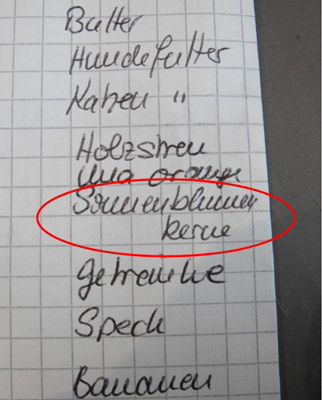 Butter
Hundefutter
Katzen "
Holzstreu
Una orange
Sonnenblumen
kerne
Getränke
Speck
Bananen